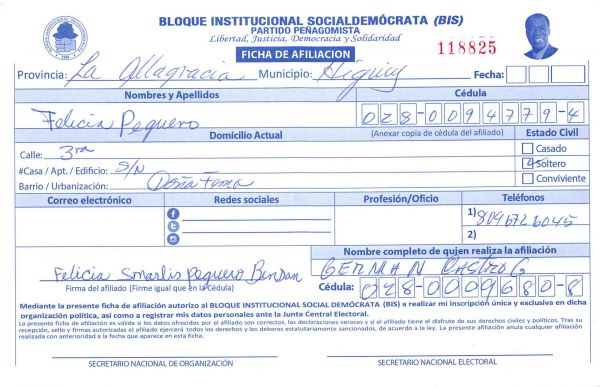 BLOQUE INSTITUCIONAL SOCIALDEMÓCRATA (BIS)
PARTIDO PEÑAGOMISTA
Libertad, Justicia, Democracia y Solidaridad
FICHA DE AFILIACION
118825
Provincia: La Altagracia Municipio: Higüey Fecha:
Nombres y Apellidos Cédula
Felicia Peguero 028-0094779-4
Domicilio Actual (Anexar copia de cédula del afiliado) Estado Civil
Calle: 3ra Casado
#Casa / Apt. / Edificio: S/N Soltero
Barrio / Urbanización: Doña Fema Conviviente
Correo electrónico Redes sociales Profesión/Oficio Teléfonos
1) 8096726045
2)
Nombre completo de quien realiza la afiliación
Felicia Smarlis Peguero GERMAN CASTRO G
Firma del afiliado (Firme igual que en la Cédula) Cédula: 028-0009680-8
Mediante la presente ficha de afiliación autorizo al BLOQUE INSTITUCIONAL SOCIAL DEMÓCRATA (BIS) a realizar mi inscripción única y exclusiva en dicha
organización política, así como a registrar mis datos personales ante la Junta Central Electoral.
La presente ficha de afiliación es válida si los datos ofrecidos por el afiliado son correctos, las declaraciones veraces y si el afiliado tiene el disfrute de sus derechos civiles y políticos. Tras su
recepción, sello y firmas autorizadas el afiliado ejercerá todos los derechos y los deberes estatutariamente sancionados, de acuerdo a la ley. La presente afiliación anula cualquier afiliación
realizada con anterioridad a la fecha que aparece en esta ficha.
SECRETARIO NACIONAL DE ORGANIZACIÓN SECRETARIO NACIONAL ELECTORAL